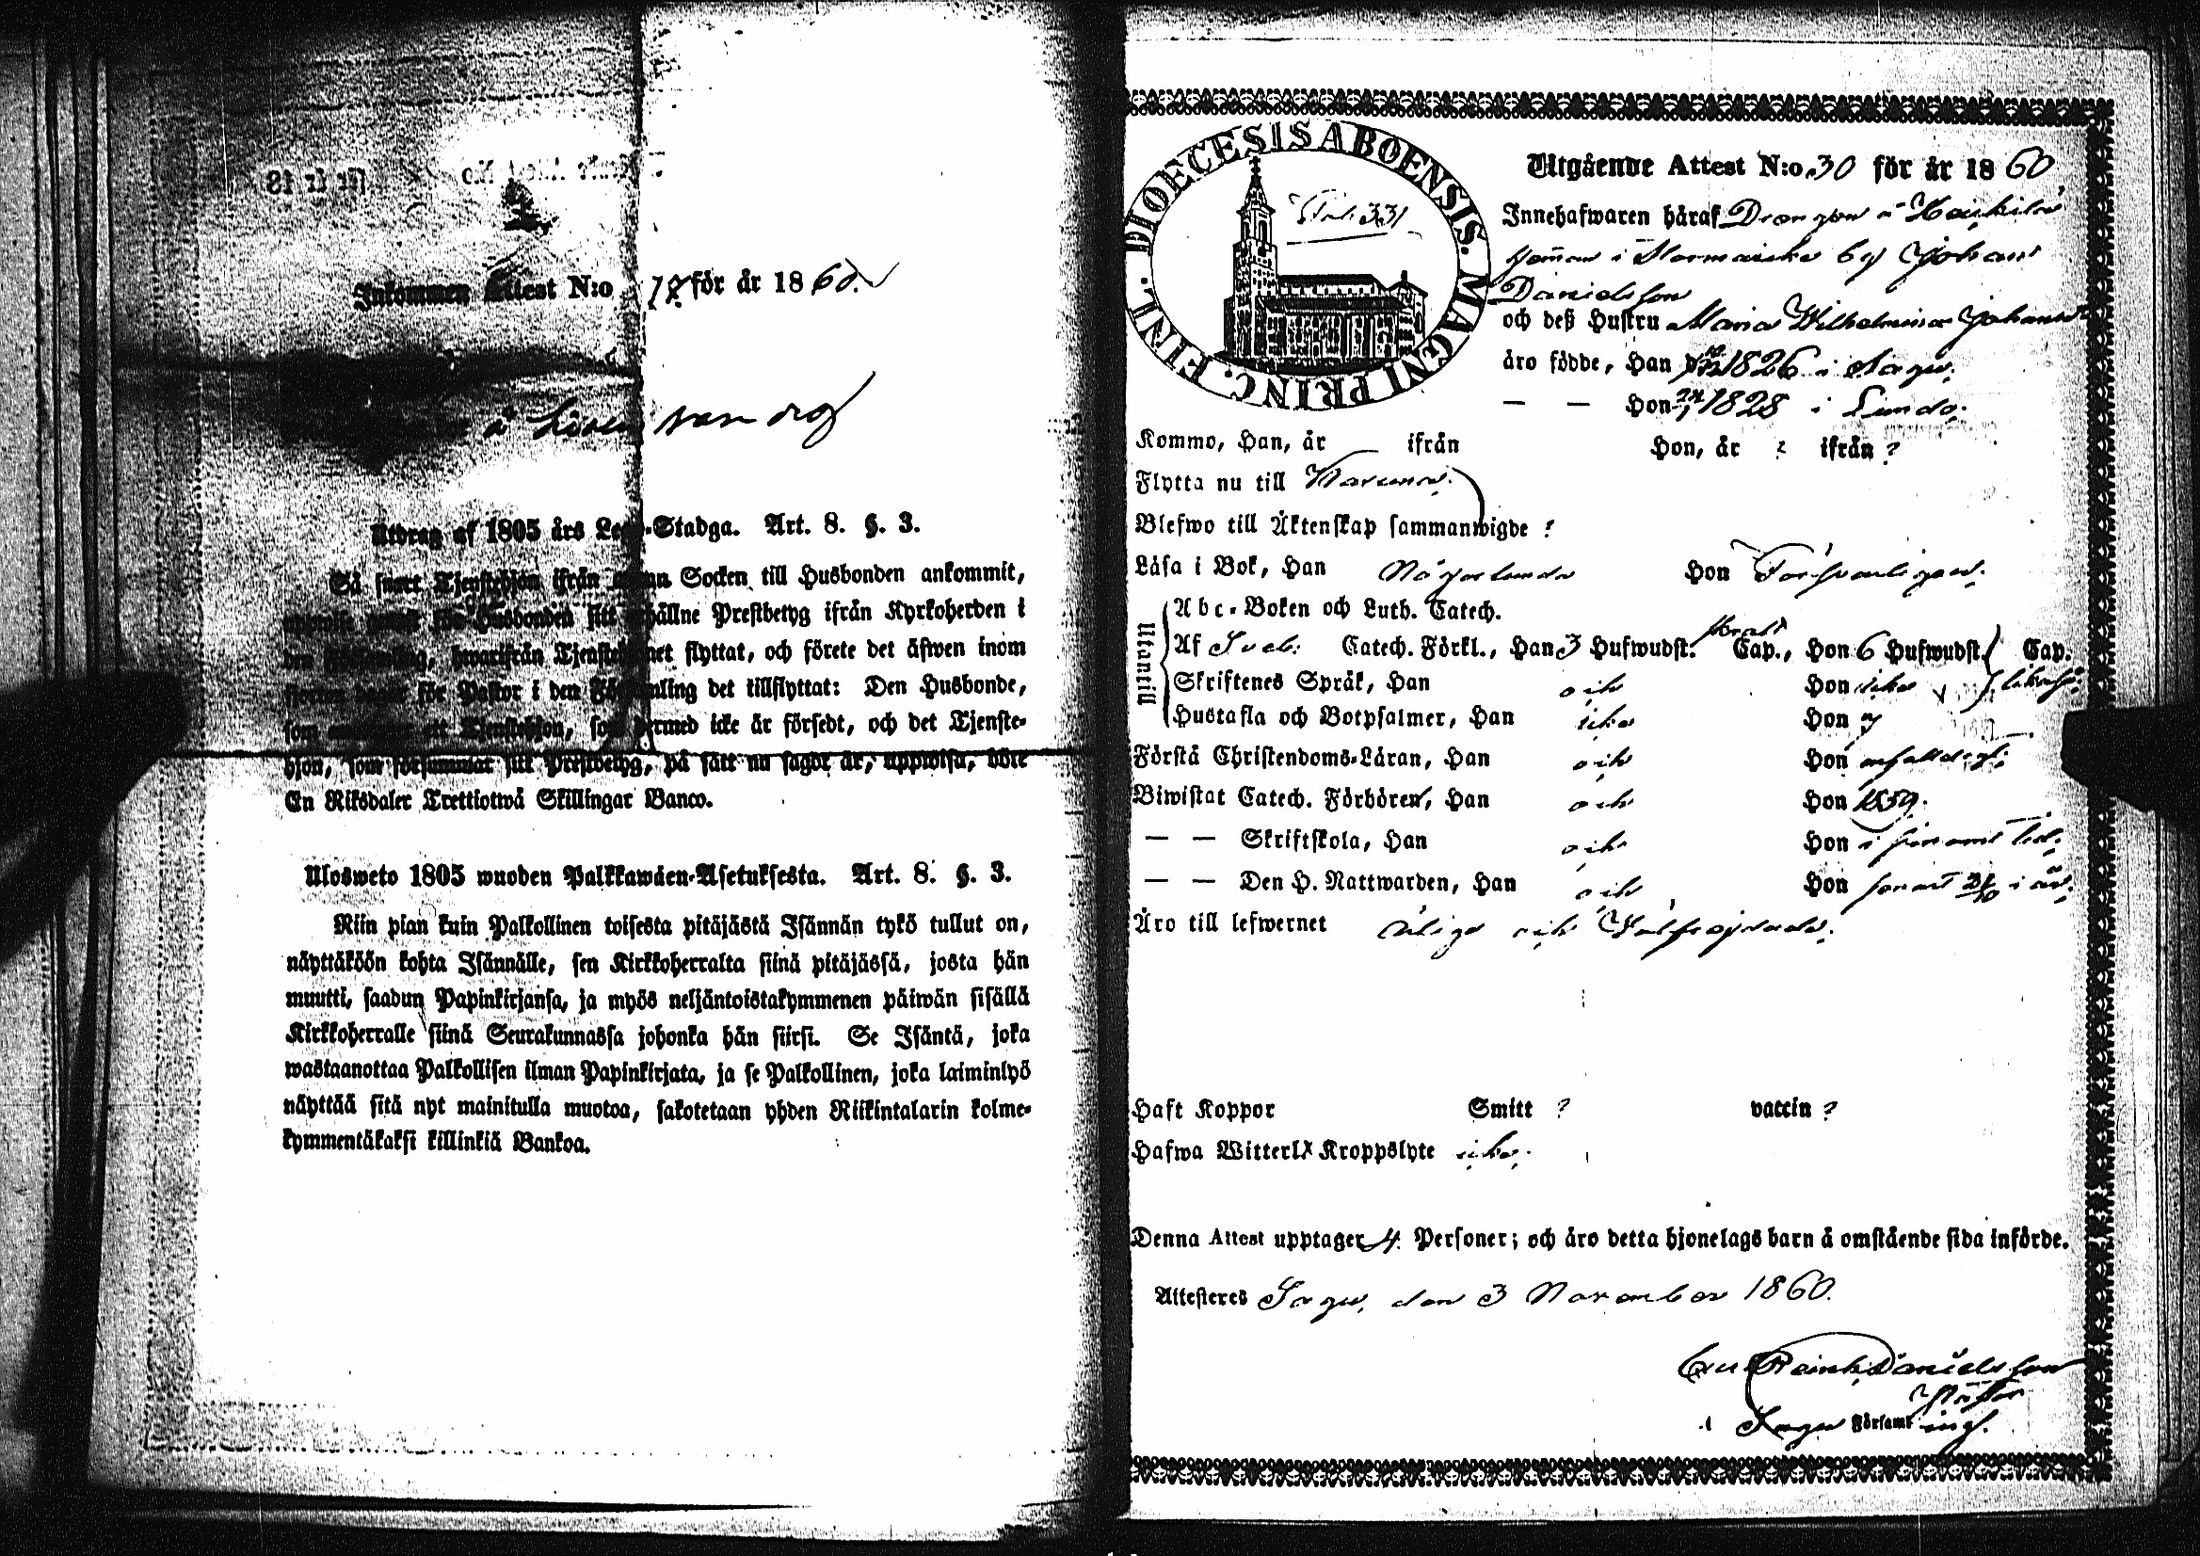 Inkommen Attest N:o 18 för år 1860.
å
Utdrag af 1805 års Lego-Stadga. Art. 8. §. 3.
Så snart Tjenstehjon ifrån annan Socken till Husbonden ankommit,
Husbonden sitt erhållne Prestbetyg ifrån Kyrkoherden i
den Församling, hwarifrån Tjenstehjonet flyttat, och förete det äfwen inom
fjorton dagar för Pastor i den Församling det tillflyttat: Den Husbonde,
som Tjenstehjon, som dermed icke är försedt, och det Tjenste-
hjon, som försummat sitt Prestbetyg, på sätt nu sagdt är, uppwisa, böte
En Riksdaler Trettiotwå Skillingar Banco.
Ulosweto 1805 wuoden Palkkawäen-Asetuksesta. Art. 8. §. 3.
Niin pian kuin Palkollinen toisesta pitäjästä Isännän tykö tullut on,
näyttäköön kohta Isännälle, sen Kirkkoherralta siinä pitäjässä, josta hän
muutti, saadun Papinkirjansa, ja myös neljäntoistakymmenen päiwän sisällä
Kirkkoherralle siinä Seurakunnassa johonka hän siirsi. Se Isäntä, joka
wastaanottaa Palkollisen ilman Papinkirjata, ja se Palkollinen, joka laiminlyö
näyttää sitä nyt mainitulla muotoa, sakotetaan yhden Riikintalarin kolme-
kymmentäkaksi killinkiä Bankoa.
DIOECESIS ABOENSIS. MAGNI PRINC. FINL.
Fol. 331
Utgående Attest N:o 30 för år 1860
Innehafwaren häraf Drängen å
i by Johan
Danielsson
och deß Hustru Maria Wilhelmina Johansd
äro födde, Han 1826 i Sagu.
— — Hon 1828 i Lundo.
Kommo, Han, år ifrån Hon, år ? ifrån ?
Flytta nu till
Blefwo till Äktenskap sammanwigde ?
Läsa i Bok, Han Någorlunda Hon Förswarligen.
Utantill
Abc-Boken och Luth. Catech.
Af Sveb: Catech. Förkl., Han 3 Hufwudst. Cap., Hon 6 Hufwudst. Cap.
Skriftenes Språk, Han och Hon icke
Hustafla och Botpsalmer, Han icke Hon
Förstå Christendoms-Läran, Han och Hon enfaldigt.
Biwistat Catech. Förhören, Han och Hon 1859.
— — Skriftskola, Han och Hon i sinom tid.
— — Den H. Nattwarden, Han och Hon senast i år.
Äro till lefwernet ärliga och Wälfrejdade.
Haft Koppor Smitt ? vaccin ?
Hafwa Witterl. Kroppslyte icke.
Denna Attest upptager 4 Personer; och äro detta hjonelags barn å omstående sida införde.
Attesteres Sagu, den 3 November 1860.
Reinh. Danielsson
Pastor
i Sagu Församling.